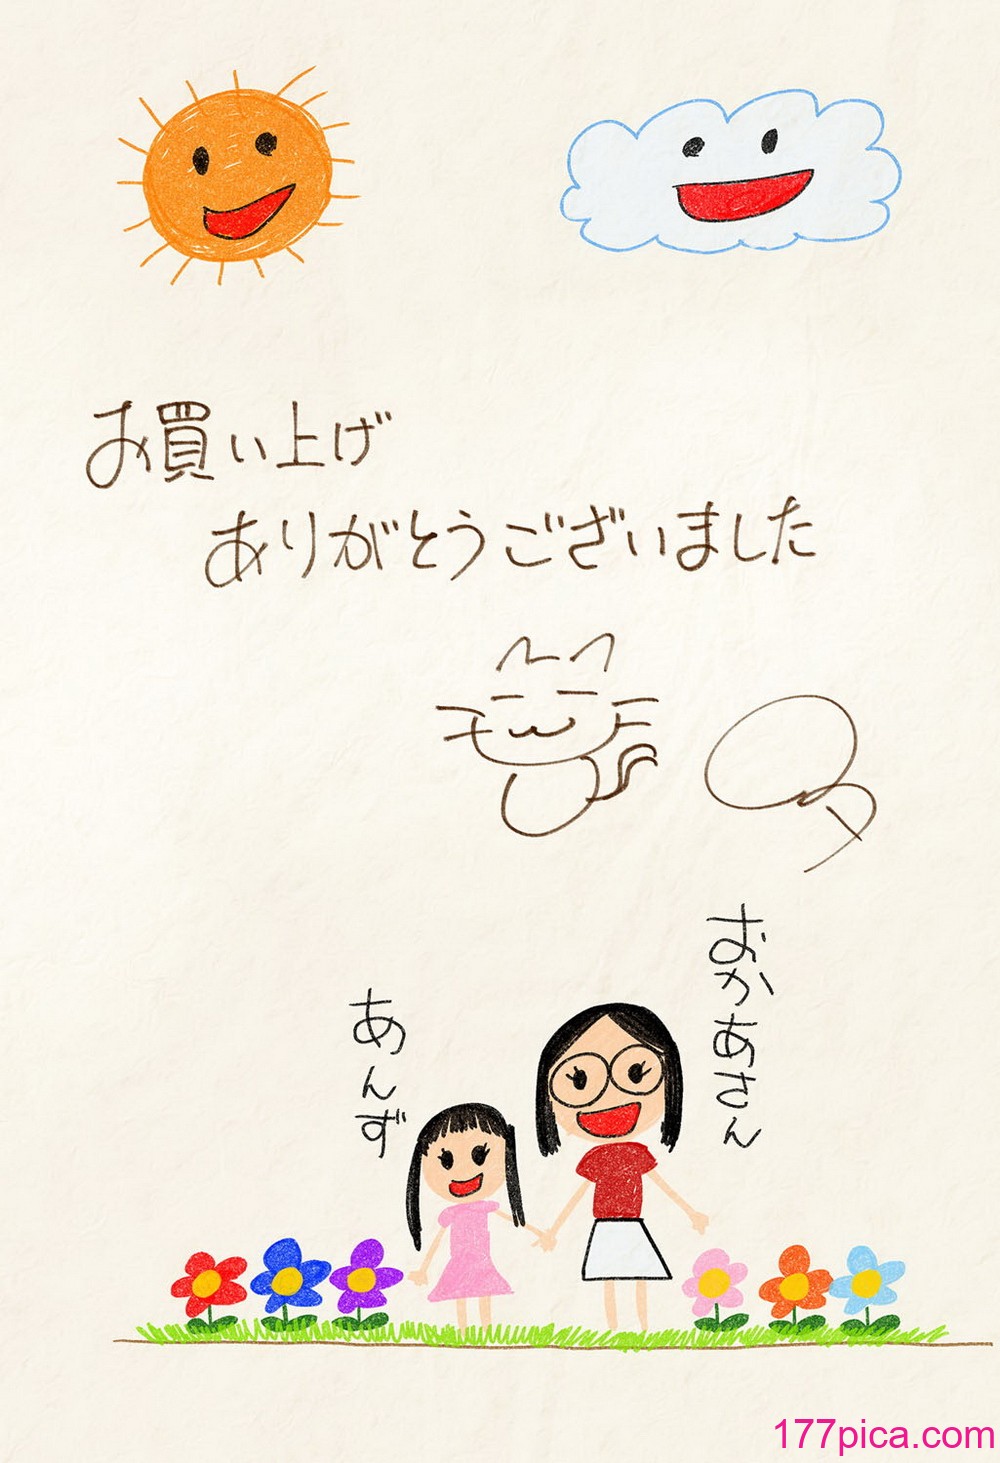 お買い上げ
ありがとうございました
おかあさん
あんず
177pica.com